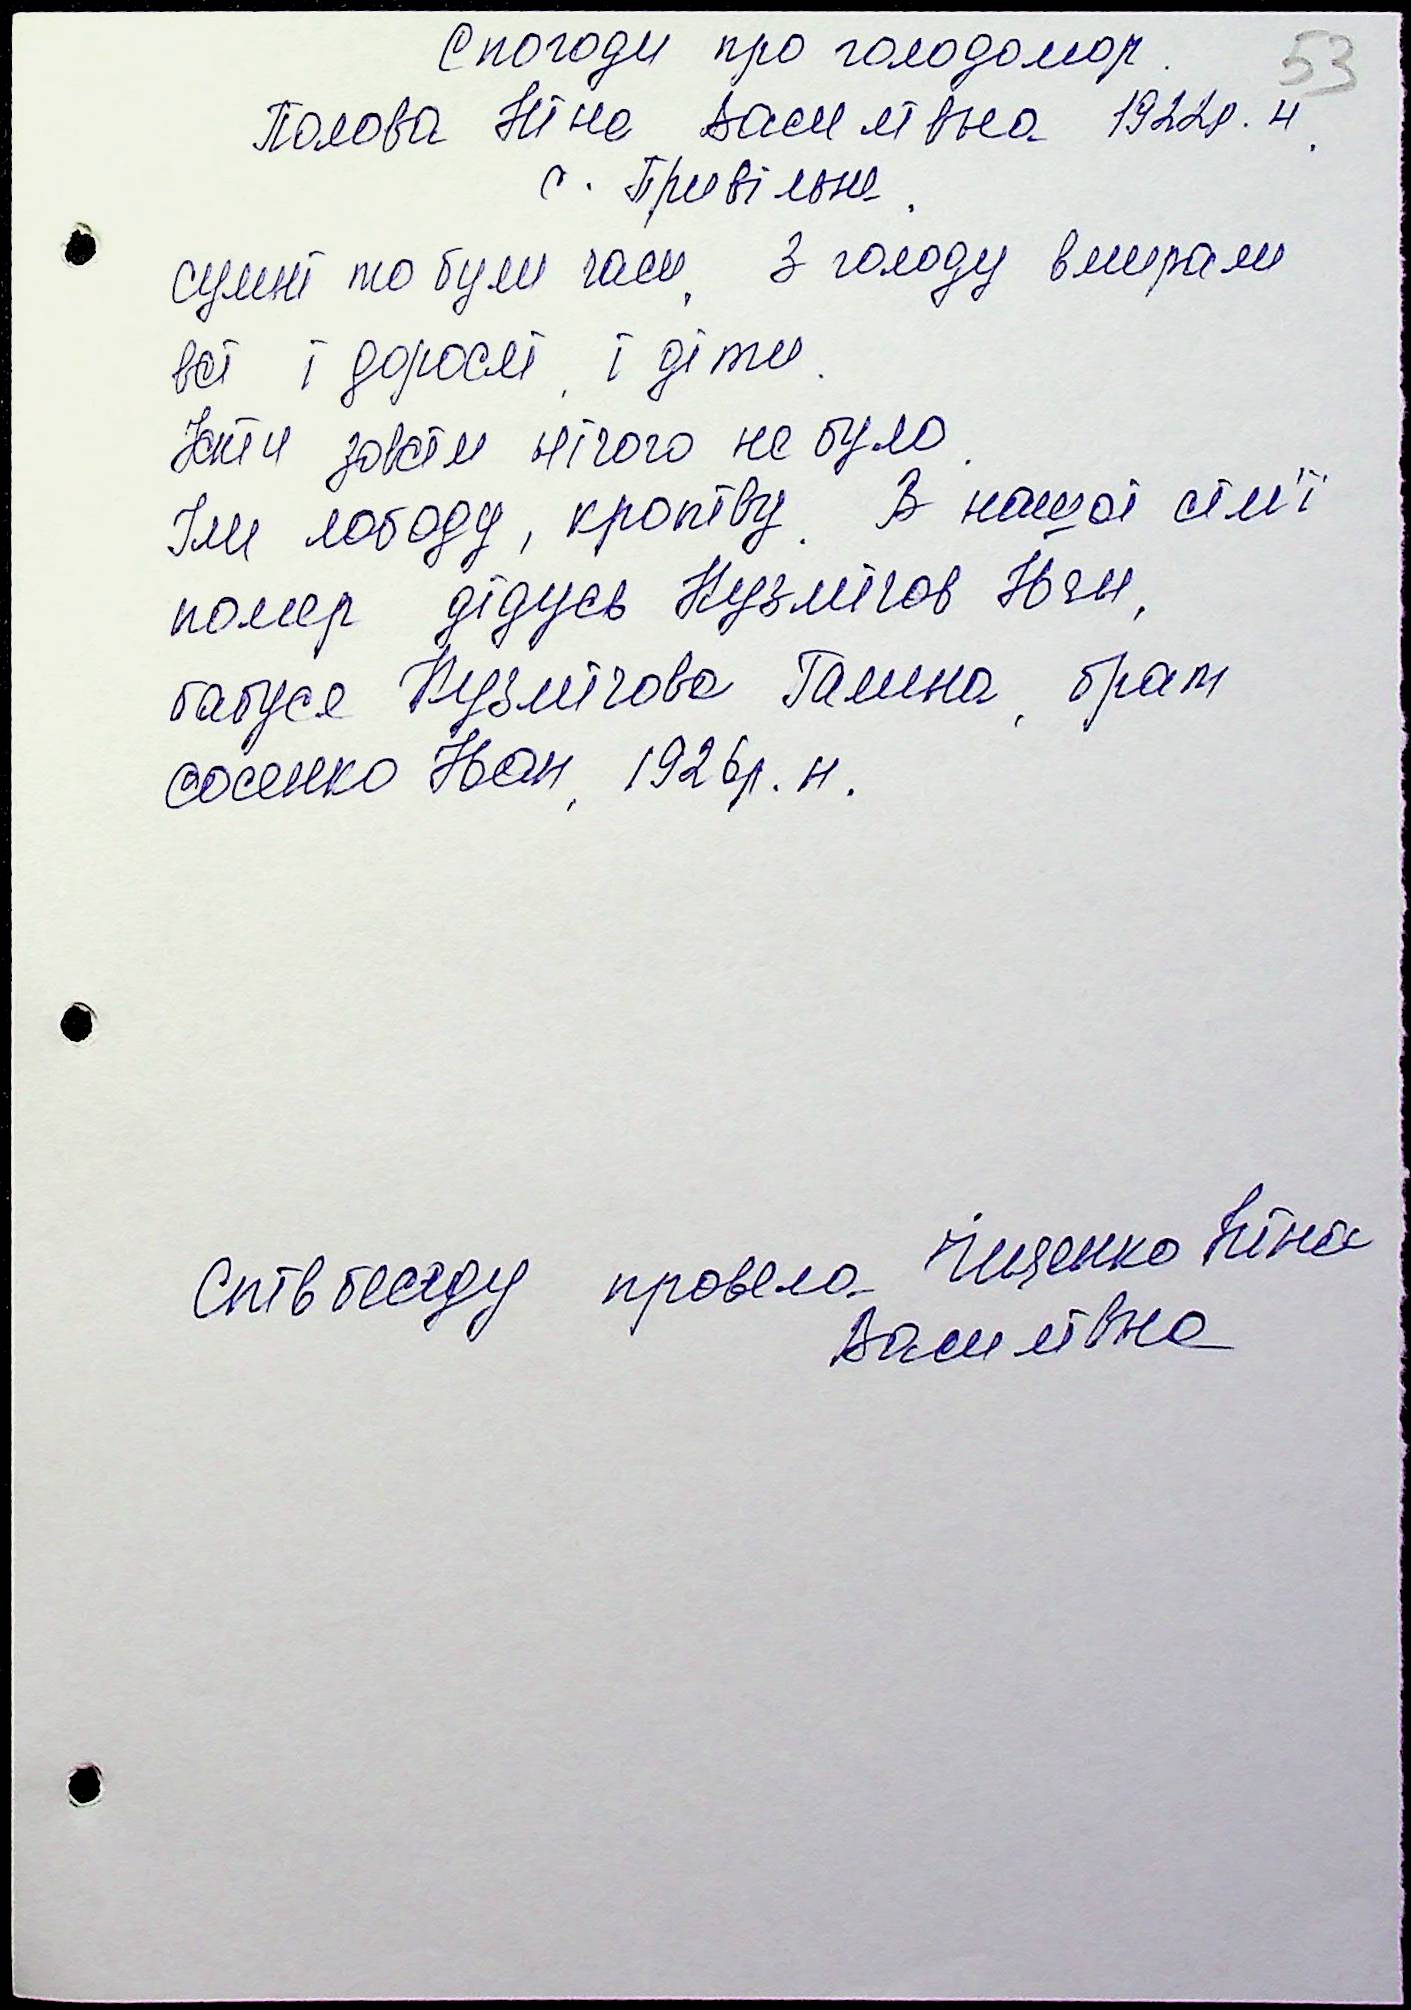 Спогоди про голодомор.
53
Попова Ніна Василівна 1922р. н.
с. Привільне.
сумні то були часи. З голоду вмирали
всі і дорослі, і діти.
Їсти зовсім нічого не було.
Їли лободу, кропіву. В нашої сім'ї
помер дідусь Кузмічов Іван,
бабуся Кузмічова Галина, брат
Сосенко Іван, 1926р. н.
Співбесіду провела Іщенко Ніна
Василівна